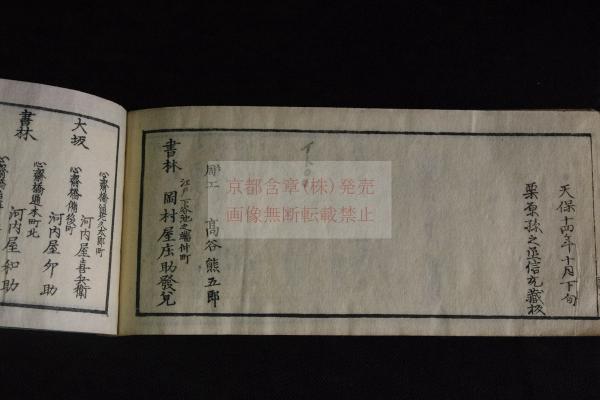 天保十四年十月下旬
栗原孫之丞信充蔵板
彫工 高谷熊五郎
江戸下谷池之端仲町
書林 岡村屋庄助發兌
京都含章(株)発売
画像無断転載禁止
大坂
書林
心斎橋備後町
河内屋喜兵衛
河内屋卯助
心斎橋通本町北
河内屋和助